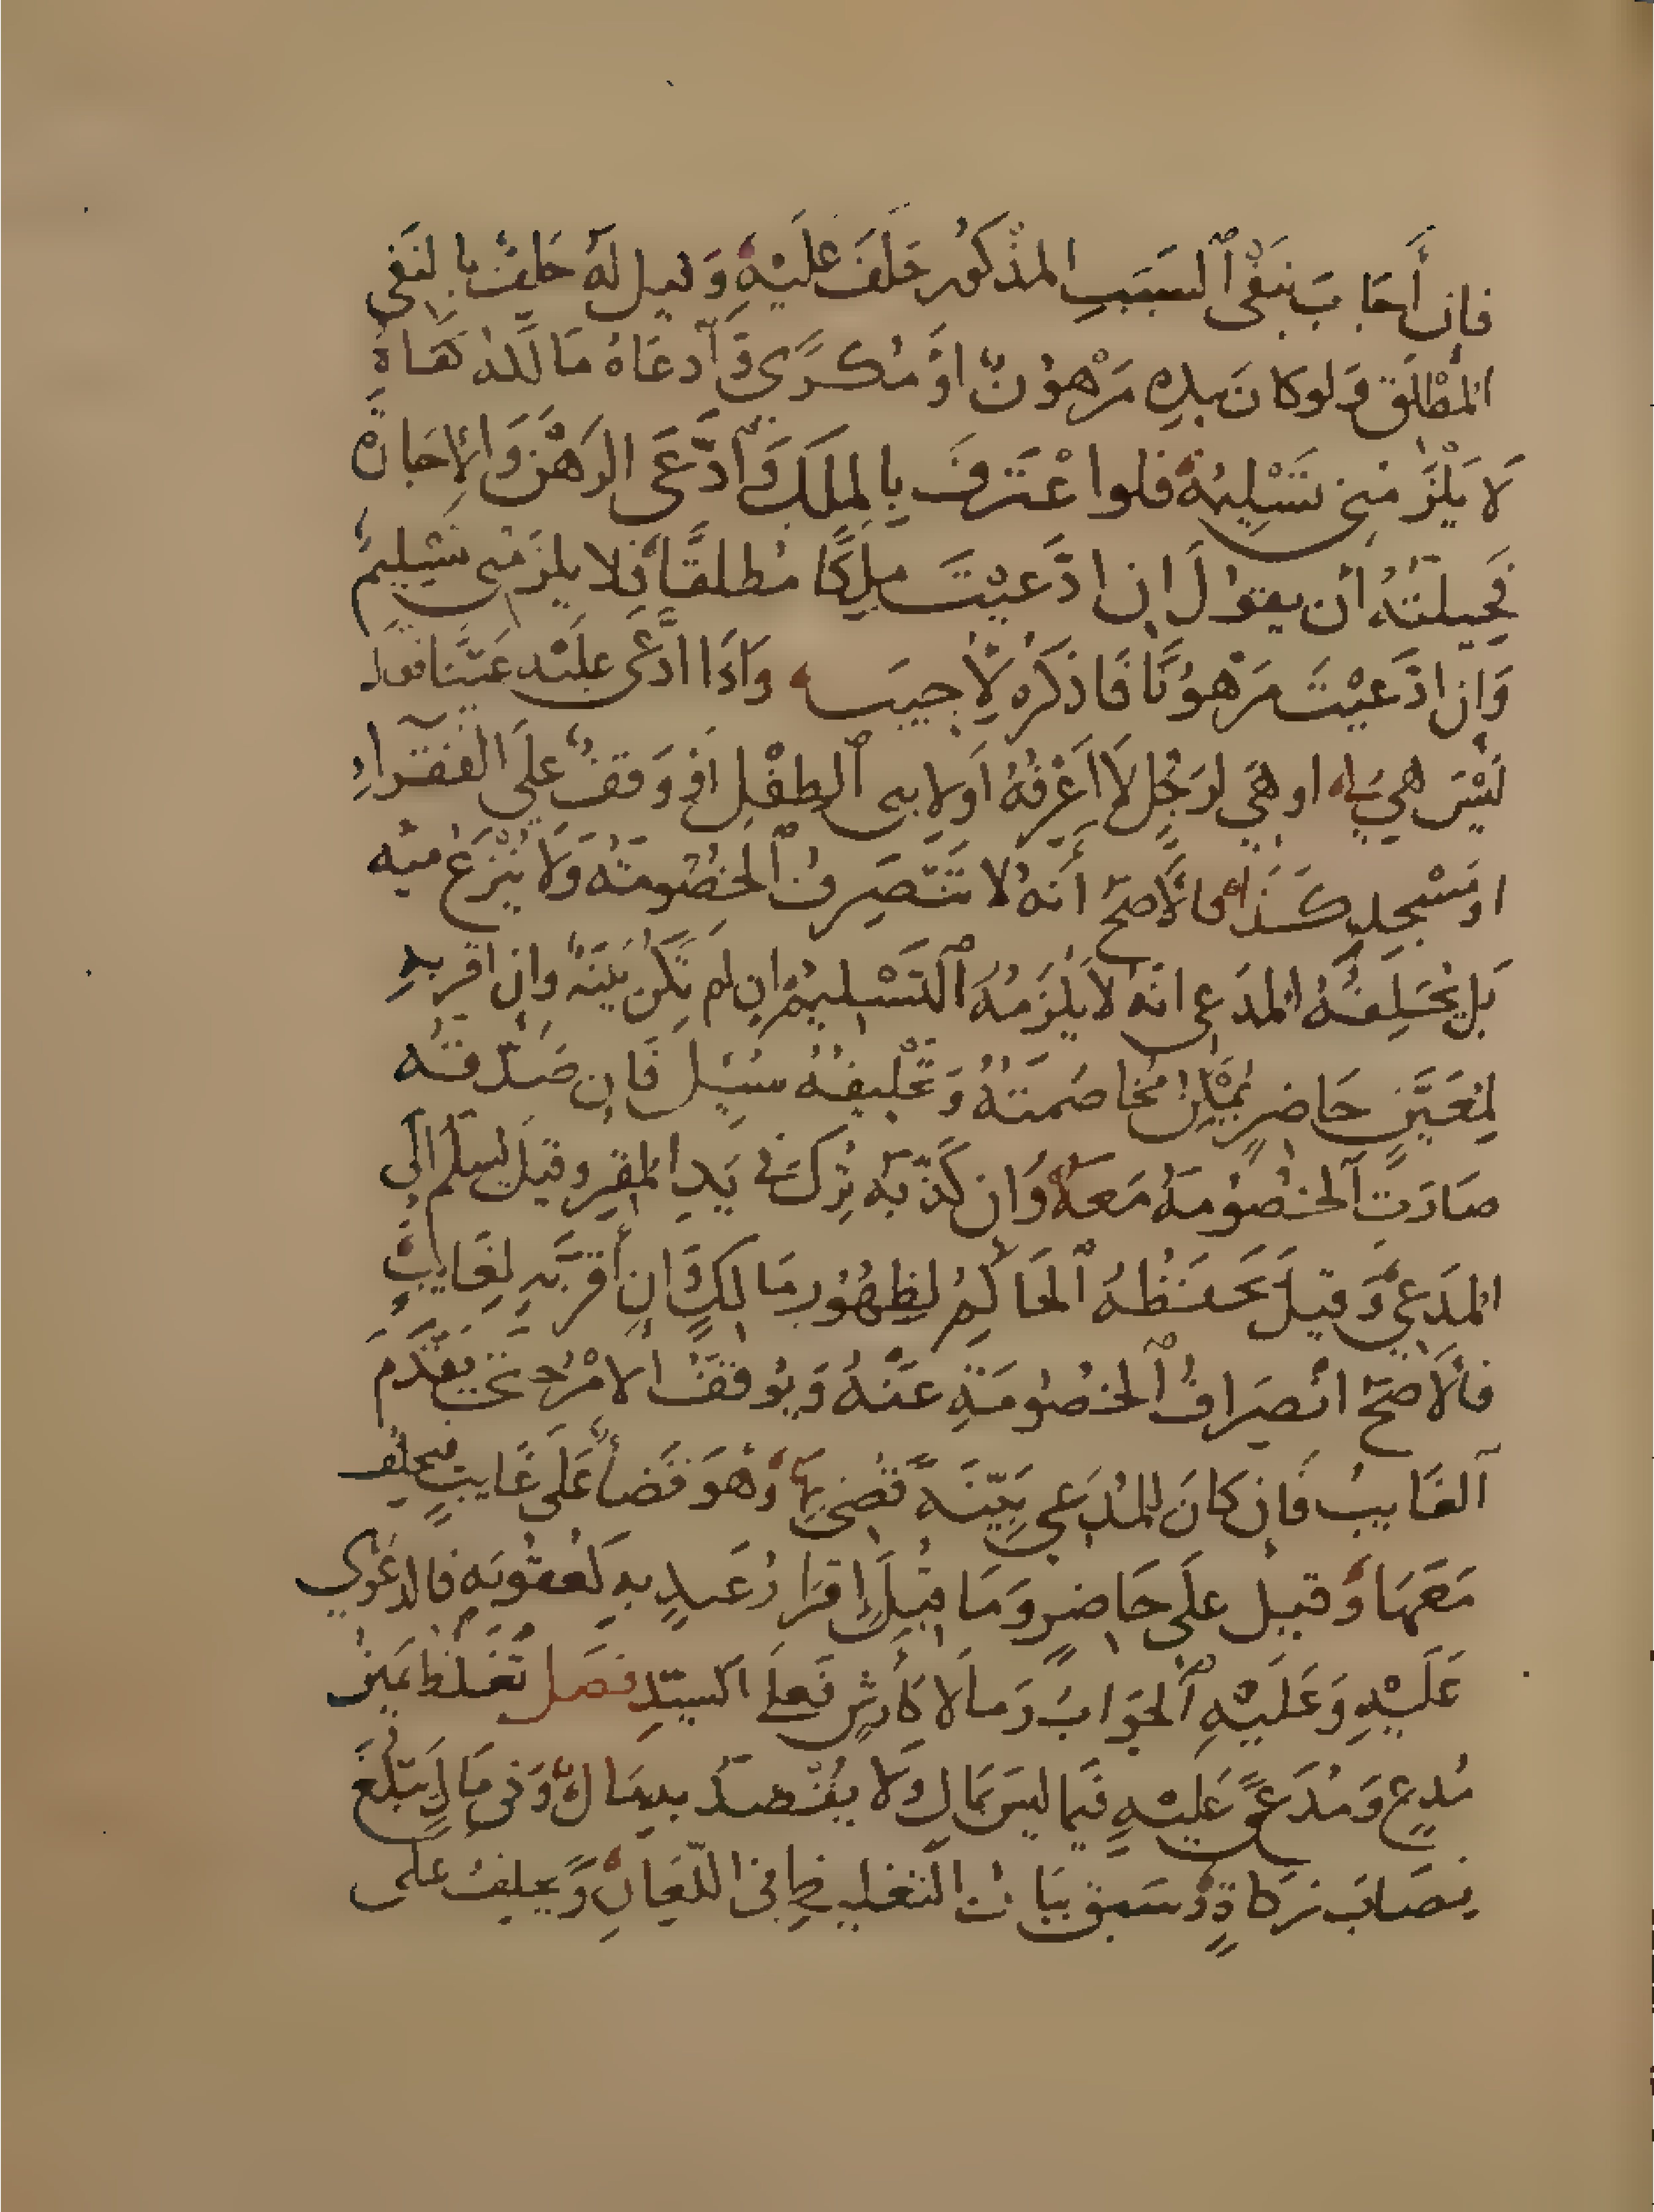 فإن أَجَابَ بنَفْي ٱلسَبَبِ المذْكُور حَلَفَ عَلَيْهِ وَقيل لَهُ حَلِفٌ بالنَفى
المُطْلَق وَلوكانَ بيدِهِ مَرْهُونٌ اوْ مُكرًى وَٱدعَاهُ مَالكه كفاهُ
لا يَلْزَمنى تَسْلِيمُهُ فلو اعْتَرَفَ بالملكِ وَٱدَّعَى الرَهْنَ وَالإجَارَة
فَحِيلتُهُ أن يقولَ ان ادَّعَيْتَ مِلكًا مُطلقًا فلا يلزَمُنى تَسْليمٌ
وَان ادَّعَيْتَ مَرْهُونًا فَاذكُره لِأُجيبَ وَاذَا ادَّعَى عليْه عَيْنًا فقال
لَيْسَ هي لى او هي لرَجُلٍ لا اَعْرِفُهُ اَو لابنى ٱلطِفْلِ اَوْ وَقفٌ عَلى الفُقَراءِ
او مَسْجِدِ كَذَا فالأصَحّ أنهُ لا تَنْصَرِفُ ٱلخصُومَةُ وَلا يُنْزَعُ منه
بَل يُحَلِّفُهُ المُدَعِي انَهُ لا يَلْزَمُهُ ٱلتَسْلِيمُ إن لم تكُن بَيّنَةٌ وان اقر بهِ
لِمُعَيَّنٍ حَاضِرٍ يُمْكِنُ مُخَاصَمَتُهُ وَتَحْليفُهُ سُئِلَ فَإن صَدَّقهُ
صَارَتِ ٱلخُصُومَةُ مَعَهُ وَان كَذَّبَهُ تُرِكَ في يَدِ المُقِر وقيلَ يُسلَم الى
المُدَعِي وَقيلَ يَحفَظُهُ ٱلحَاكِمُ لِظُهُورِ مَالكٍ وَان أقرَّ بهِ لِغَايبٍ
فالأصَحّ انْصِرَافُ ٱلخصُومَةِ عَنْهُ وَيُوقَفُ الأمْرُ حتى يَقْدَمَ
ٱلغَايبُ فَإن كانَ للمُدَعِي بَيّنَةٌ قضِيَ بهَا وَهُوَ قَضاءٌ عَلَى غَايبٍ فيحلف
مَعَهَا وَقيل عَلَى حَاضِرٍ وَمَا قُبِلَ إقرَارُ عَبدٍ بهِ كعُقُوبَةٍ فالدَعْوَى
عَلَيْهِ وَعَلَيْهِ ٱلجَوَابُ وَمَا لا كأرْشٍ فَعَلَى السَيّدِ فصل تُغَلَظ يَمينُ
مُدعٍ وَمُدَعًى عَليْهِ فيمَا ليسَ بمَالٍ وَلا يُقْصَدُ به مَالٌ وَفي مَالٍ يَبْلُغُ
نِصَابَ زكاةٍ وَسَبَق بيَانُ التغليظ في اللّعَانِ وَيحلِفُ على